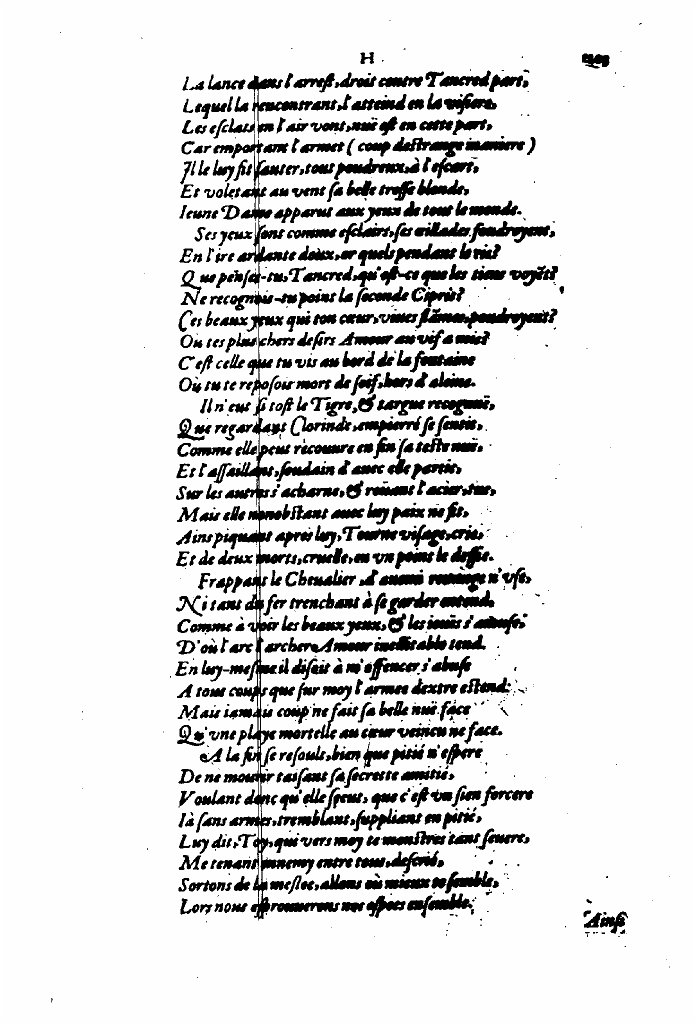 H
La lance dans l'arrest, droit contre Tancred part,
Lequel la rencontrant, l'atteind en la visiere,
Les esclats en l'air vont, nuë est en cette part,
Car emportant l'armet ( coup d'estrange maniere )
Il le luy fit sauter, tout poudreux, à l'escart,
Et voletant au vent sa belle tresse blonde,
Ieune Dame apparut aux yeux de tout le monde.
Ses yeux sont comme esclairs, ses œillades foudroyent,
En l'ire ardante doux, or quels pendant le ris?
Que penses-tu, Tancred, qu'est-ce que les tiens voyẽt?
Ne recognois-tu point la seconde Cipris?
Ces beaux yeux qui ton cœur, viues flãmes, poudroyent?
Où tes plus chers desirs Amour au vif a mis?
C'est celle que tu vis au bord de la fontaine
Où tu te reposois mort de soif, hors d'aleine.
Il n'eut si tost le Tigre, & targue recognuë,
Que regardant Clorinde, empierré se sentit,
Comme elle peut recouure en fin sa teste nuë,
Et l'assaillant, soudain d'auec elle partit,
Sur les autres s'acharne, & roüant l'acier, tue,
Mais elle nonobstant auec luy paix ne fit,
Ains piquant apres luy, Tourne visage, crie,
Et de deux morts, cruelle, en vn point le deffie.
Frappant le Cheualier, d'aucune reuenge n'vse,
Ni tant du fer trenchant à se garder entend,
Comme à voir les beaux yeux, & les iouës s'amuse,
D'où l'arc l'archer Amour ineuitable tend.
En luy-mesme il disoit à m'offencer s'abuse
A tous coups que sur moy l'armee dextre estend:
Mais iamais coup ne fait sa belle nuë face
Qu'vne playe mortelle au cœur veincu ne face.
A la fin se resoult, bien que pitié n'espere
De ne mourir taisant sa secrette amitié,
Voulant donc qu'elle sçeut, que c'est vn sien forcere
Ià sans armes, tremblant, suppliant en pitié,
Luy dit, Toy, qui vers moy te monstres tant seuere,
Me tenant ennemy entre tous, descrié,
Sortons de la meslee, allons où mieux te semble,
Lors nous esprouuerons nos espees ensemble.
Ainsi